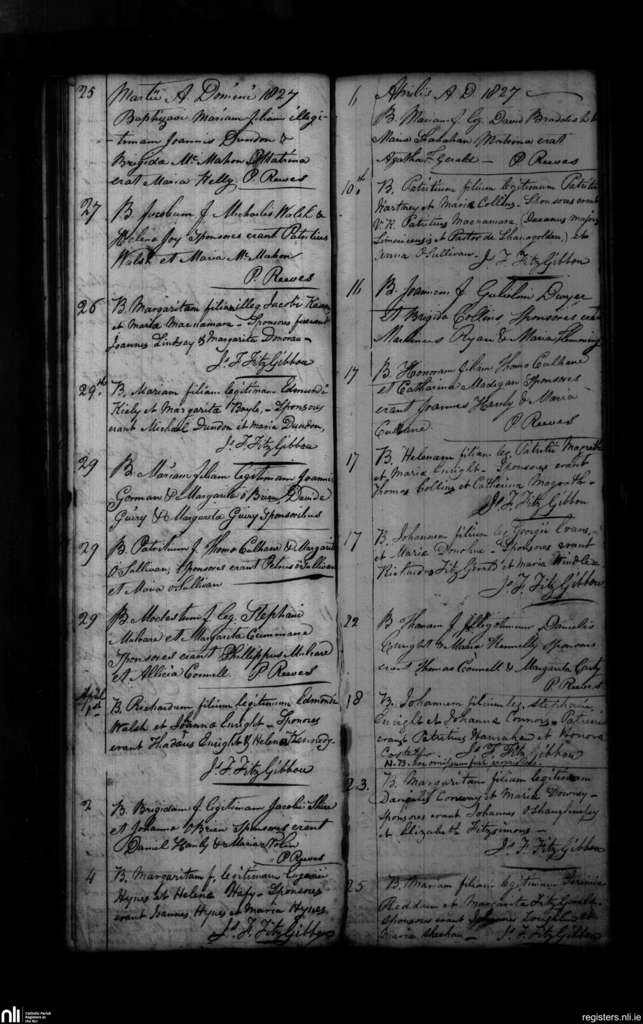 25 Martii A Domini 1827
Baptizavi Mariam filiam illegi-
timam Joannis Dundon &
Brigida McMahon Matrina
erat Maria Kelly P Reeves
27 B Jacobum f Michaelis Walsh &
Helena Joy Sponsores erant Patritius
Walsh et Maria McMahon
P. Reeves
26 B. Margaritam filiam illeg Jacobi
et Maria Macnamara - Sponsores fuerunt
Joannes Lindsay & Margarita
Js. F. FitzGibbon
29th B. Mariam filiam legitimam Edmundi
Kiely et Margarita Boyle, - Sponsores
erant Michael Dundon et Maria Dundon,
Js. F. FitzGibbon
29 B Mariam filiam legitimam Joannis
Gorman & Margarita O Brien Davide
Guiry & Margarita Guiry Sponsoribus
29 B Patritium f Thoma Culhane & Margarita
O Sullivan, Sponsores erant Petrus O Sullivan
et Maria O Sullivan
29 B Modestum f leg. Stephani
Mulcare et Margarita
Sponsores erant Phillippus Mulcare
et Allicia Connell. P Reeves
April 1st B. Richardum filium legitimum Edmundi
Walsh et Johanna Enright - Sponsores
erant Thadæus Enright & Helena Kennedy.
Js. F. FitzGibbon
2 B. Brigidam f legitimam Jacobi
et Johanna O Brien Sponsores erant
Daniel Hanly & Maria
P Reeves
4 B. Margaritam f. legitimam Eugenii
Hynes et Helena - Sponsores
erant Joannes Hynes et Maria Hynes
Js. F. FitzGibbon
6 Aprilis A D 1827
B. Mariam f leg. David &
Maria Shanahan Matrona erat
Agatha F Gerald - P Reeves
10th B. Patritium filium legitimum Patritii
Hartney et Maria Collins. Sponsores erant
V. R. Patritius Macnamara (Decanus major
Limericensis et Pastor de Shanagolden) et
Anna O Sullivan. Js. F. FitzGibbon
16 B Joannem f Gulielmi Dwyer
et Brigida Collins Sponsores erant
Ryan & Maria Flemming
17 B Honoram filiam Thoma Culhane
et Catharina Madigan Sponsores
erant Joannes Hanly & Maria
Culhane. P Reeves
17 B. Helenam filiam leg. Patritii Magrath
et Maria Enright - Sponsores erant
Thomas Collins et Catherina Magrath -
Js. F. FitzGibbon
17 B. Johannam filiam leg Georgii Evans,
et Maria Donohue - Sponsores erant
Richardus FitzGerald et Maria Windle -
Js. F. FitzGibbon
22 B Thomam f illegitimum Danielis
Enright & Maria Kennelly Sponsores
erant Thomas Connell & Margarita
P Reeves
18 B. Johannem filium leg. Stephani
Enright et Johanna Connors - Patrini
erant Patritius Hanrahan et Honora
Costello. Js. F. FitzGibbon
N.B.
23. B. Margaritam filiam legitimam
Danielis Conway et Maria Downey -
Sponsores erant Johannes O Shaughnessy
et Elizabeth Fitzsimons -
Js. F. FitzGibbon
25 B. Mariam filiam legitimam Jeremiæ
Reddan et Margarita FitzGerald -
Sponsores erant Johannes et
Maria Sheehan - Js. F. FitzGibbon
nli
Catholic Parish
Registers at
the NLI
registers.nli.ie